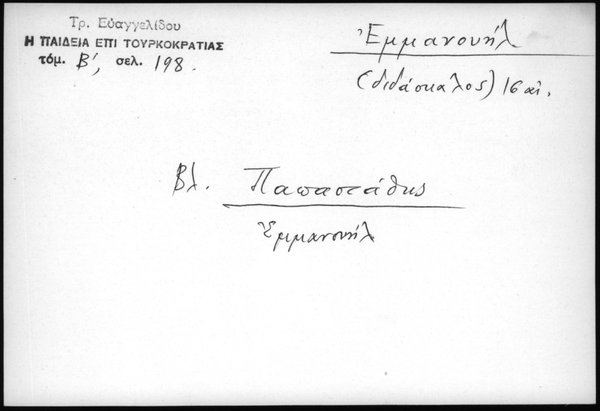 Τρ. Εὐαγγελίδου
Η ΠΑΙΔΕΙΑ ΕΠΙ ΤΟΥΡΚΟΚΡΑΤΙΑΣ
τόμ. Β', σελ. 198.
Ἐμμανουήλ
(διδάσκαλος) 16 αἰ.
Βλ. Παπαστάθης
Ἐμμανουήλ